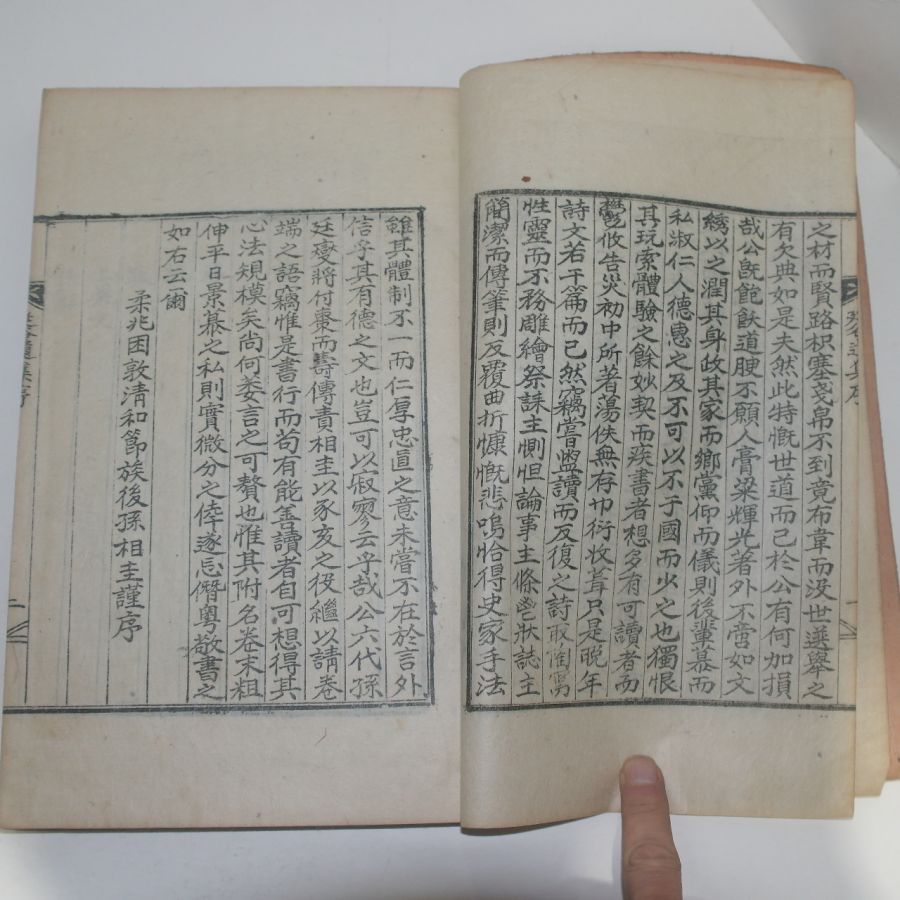 之材而賢路枳塞戔帛不到竟布韋而没世選擧之
有欠典如是夫然此特慨世道而已於公有何加損
哉公旣飽飫道腴不願人膏粱輝光著外不啻如文
綉以之潤其身政其家而鄉黨仰而儀則後輩慕而
私淑仁人德惠之及不可以不于國而少之也獨恨
其玩索體驗之餘妙契而疾書者想多有可讀者而
鬱攸告災初中所著蕩佚無存巾衍收葺只是晩年
詩文若干篇而已然竊嘗盥讀而反復之詩取陶寫
性靈而不務雕繪祭誄主惻怛論事主條鬯狀誌主
簡潔而傳筆則反覆曲折慷慨悲嗚恰得史家手法
雖其體制不一而仁厚忠道之意未嘗不在於言外
信乎其有德之文也豈可以寂寥云乎哉公六代孫
廷燮將付棗而壽傳責相圭以豕亥之役繼以請卷
端之語竊惟是書行而苟有能善讀者自可想得其
心法規模矣尚何委言之可贅也惟其附名卷末粗
伸平日景慕之私則實微分之倖遂忘僭粤敬書之
如右云爾
柔兆困敦淸和節族後孫相圭謹序
二